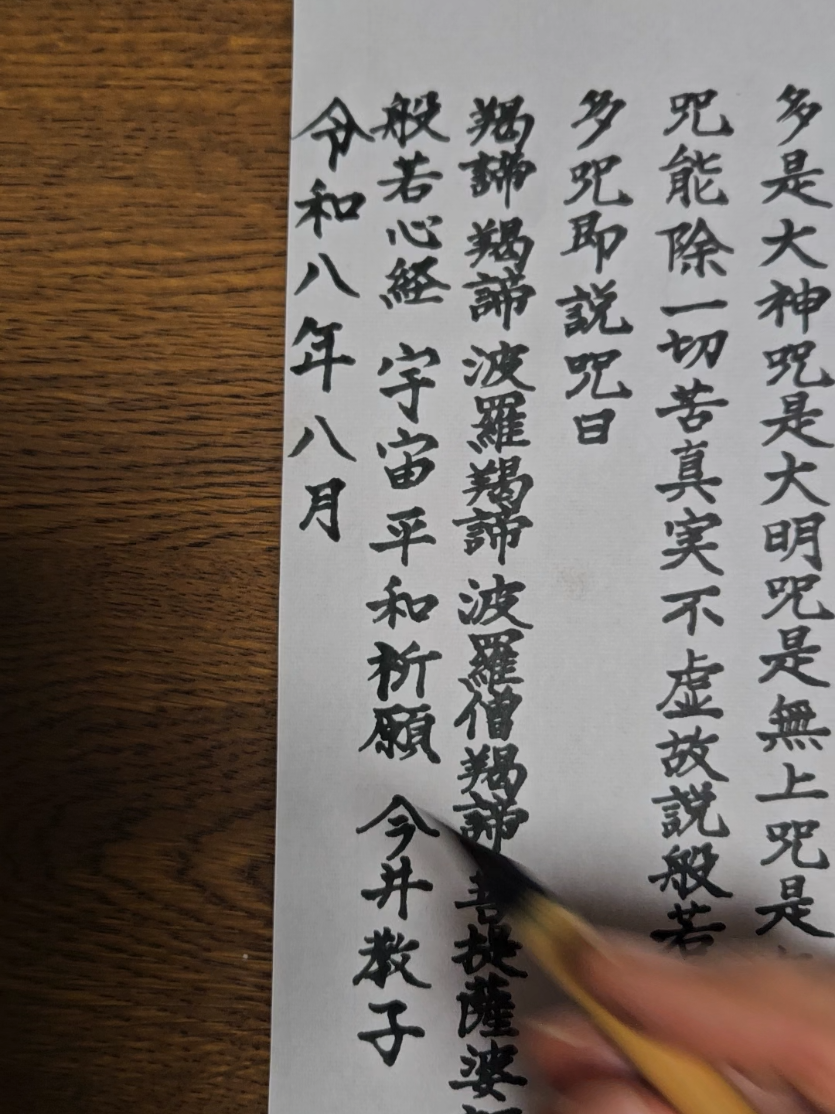 多是大神咒是大明咒是無上咒是
咒能除一切苦真実不虚故説般若
多咒即説咒曰
羯諦羯諦波羅羯諦波羅僧羯諦菩提薩婆
般若心経 宇宙平和祈願 今井教子
令和八年八月